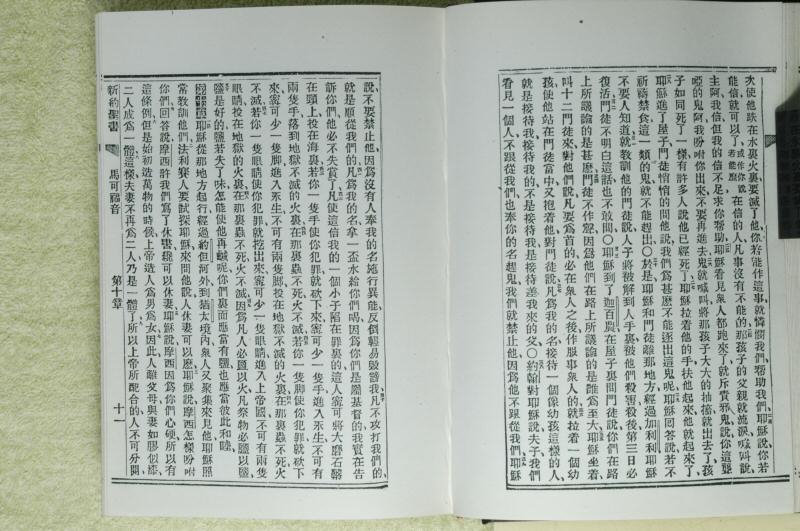 次使他跌在水裏火裏要滅了他你若能作這事就憐憫我們幫助我們耶穌說你若
能信就可以了在信的人凡事沒有不能的那孩子的父親就流淚喊叫說
主阿我信但我的信不足求你幫助耶穌看見衆人都跑來了就斥責邪鬼說你這聾
啞的鬼阿我吩咐你出來不要再進去鬼就喊叫將那孩子大大的抽搐就出去了孩
子如同死了一樣有許多人說他已經死了耶穌拉着他的手扶他起來他就起來了
耶穌進了屋子門徒悄悄的問他說我們爲甚麽不能逐出這鬼呢耶穌回答說若不
祈禱禁食這一類的鬼就不能趕出〇於是耶穌和門徒離那地方經過加利利耶穌
不要人知道就教訓他的門徒說人子將被解到人手裏被他們殺害殺後第三日必
復活門徒不明白這話也不敢問〇耶穌到了迦百農在屋子裏問門徒說你們在路
上所議論的是甚麽門徒不作聲因爲他們在路上所議論的是誰爲至大耶穌坐着
叫十二門徒來對他們說凡要爲首的必在衆人之後作服事衆人的就拉着一個幼
孩使他站在門徒當中又抱着他對門徒說凡爲我的名接待一個像幼孩這樣的人
就是接待我接待我的不是接待我是接待差我來的父〇約翰對耶穌說夫子我們
看見一個人不跟從我們也奉你的名趕鬼我們就禁止他因爲他不跟從我們耶穌
說不要禁止他因爲沒有人奉我的名施行異能反倒輕易毀謗我凡不攻打我們的
就是順從我們的凡爲我的名拿一盃水給你們喝因爲你們是屬基督的我實在告
訴你們他必不失賞了凡使這信我的一個小子陷在罪裏的這人寗可將大磨石拴
在頸上投在海裏若你一隻手使你犯罪就砍下來寗可少一隻手進入永生不可有
兩隻手落到地獄不滅的火裏在那裏蟲不死火不滅若你一隻脚使你犯罪就砍下
來寗可少一隻脚進入永生不可有兩隻脚投在地獄不滅的火裏在那裏蟲不死火
不滅若你一隻眼睛使你犯罪就挖出來寗可少一隻眼睛進入上帝國不可有兩隻
眼睛投在地獄的火裏在那裏蟲不死火不滅因爲凡人必鹽以火凡祭物必鹽以鹽
鹽是好的鹽若失了味怎能使他再鹹呢你們裏面應當有鹽也應當彼此和睦
第十章耶穌從那地方起行經過約但河外到猶太境內衆人又聚集來見他耶穌照
常教訓他們法利賽人要試探耶穌來問他說人休妻可以麽耶穌說摩西怎樣吩咐
你們回答說摩西許我們寫了休書纔可以休妻耶穌說摩西因爲你們心硬所以有
這條例但是始初造萬物的時候上帝造人爲男爲女因此人離父母與妻如膠似漆
二人成爲一體這樣夫妻不再爲二人乃是一體了所以上帝所配合的人不可分開
新約聖書 馬可福音 第十章 十一